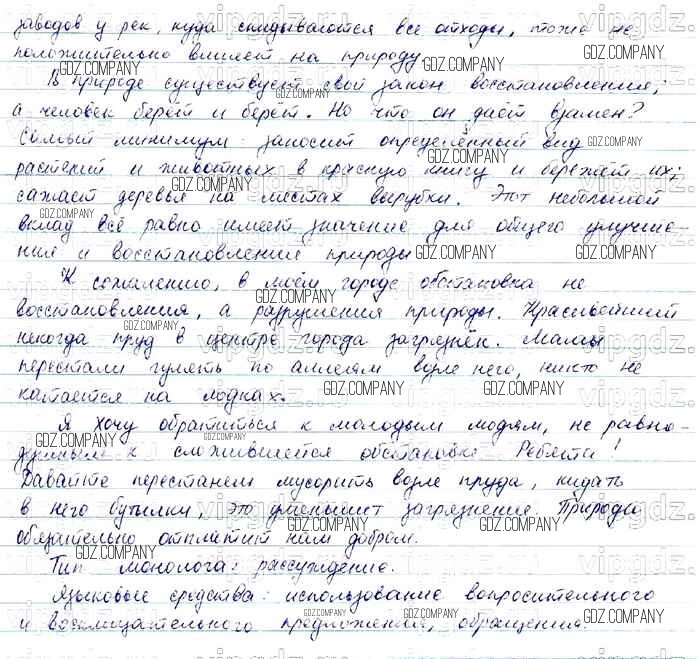 заводов у рек, куда скидываются все отходы, тоже не
положительно влияет на природу.
В природе существует свой закон восстановления,
а человек берёт и берёт. Но что он даёт взамен?
Самый минимум: заносит определённый вид
растений и животных в красную книгу и бережёт их;
сажает деревья на местах вырубки. Этот небольшой
вклад всё равно имеет значение для общего улучше-
ния и восстановления природы.
К сожалению, в моём городе обстановка не
восстановления, а разрушения природы. Красивейший
некогда пруд в центре города загрязнён. Мамы
перестали гулять по аллеям возле него, никто не
катается на лодках.
Я хочу обратиться к молодым людям, не равно-
душным к сложившейся обстановке. Ребята!
Давайте перестанем мусорить возле пруда, кидать
в него бутылки, это уменьшит загрязнение. Природа
обязательно отплатит нам добром.
Тип монолога: рассуждение.
Языковые средства: использование вопросительного
и восклицательного предложения, обращения.
GDZ.COMPANY
vipgdz.ru